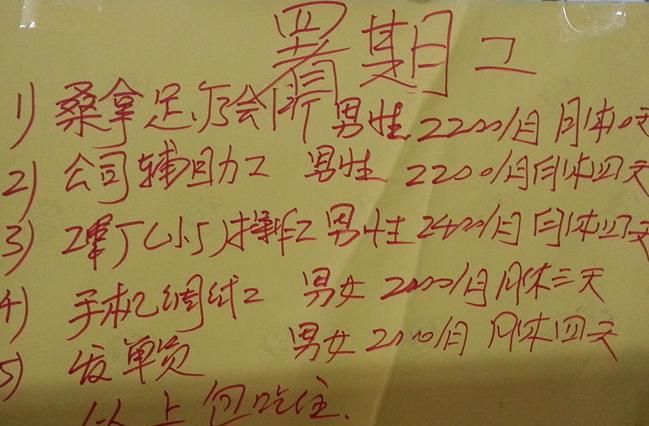 暑期工
1) 桑拿足疗会所 男性 2200/月 月休四天
2) 公司辅助工 男性 2200/月 月休四天
3) 工厂(小) 男性 2400/月 月休四天
4) 手机 男女 2000/月 月休三天
5) 发单员 男女 2000/月 月休四天
以上包吃住.